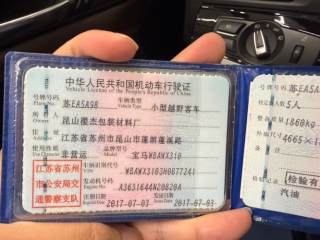 中华人民共和国机动车行驶证
Vehicle License of the People's Republic of China
号牌号码 苏EA5A98 车辆类型 小型越野客车
Plate No. Vehicle Type
所有人 昆山
杰包装材料厂
Owner
住址 江苏省苏州市昆山市蓬朗蓬溪路
Address
非营运 品牌型号 宝马WBAWX310
江苏省苏州
市公安局交
通警察支队
车辆识别代号 WBAWX3103H0B77241
VIN
发动机号码 A3631644N20B20A
Engine No.
注册日期 2017-07-03 发证日期 2017-07-03
号牌号码 苏EA5A
核定载人数 5人
整备质量 1860kg
外廓尺寸 4665×1
检验记录 检验有
汽油